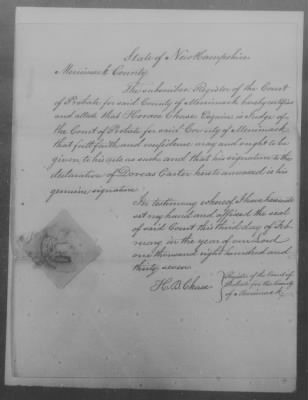 State of New Hampshire
Merrimack County
The subscriber Register of the Court
of Probate for said County of Merrimack hereby certifies
and attests that Horace Chase Esquire is Judge of
the Court of Probate for said County of Merrimack
that full faith and confidence may and ought to be
given to his acts as such and that his signature to the
declaration of Dorcas Carter hereto annexed is his
genuine signature
In testimony whereof I have hereunto
set my hand and affixed the seal
of said Court this third day of Feb-
ruary in the year of our Lord
one thousand eight hundred and
thirty seven
H. B. Chase
Register of the Court of
Probate for the County
of Merrimack